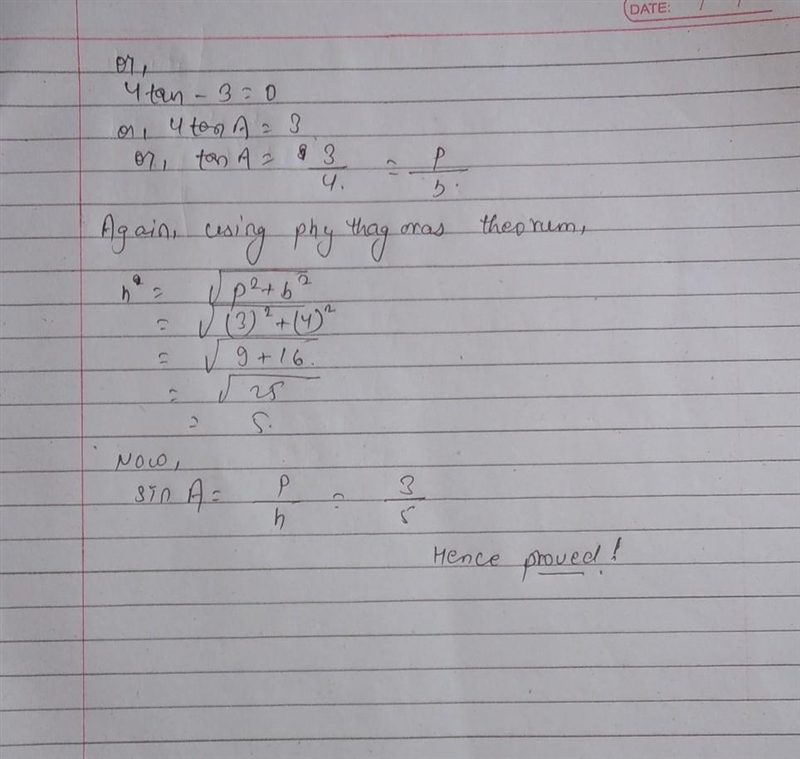 DATE: / /
or,
4 tan - 3 = 0
or, 4 tan A = 3
or, tan A = 3/4. = p/b.
Again, using phythagoras theorum,
h² = √p²+b²
= √(3)²+(4)²
= √9+16.
= √25
= 5.
Now,
sin A = p/h = 3/5
Hence proved!